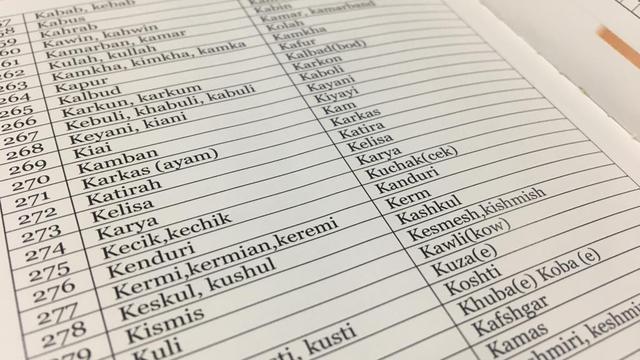 Kabab, kebab
57 Kabus
58 Kahrab
59 Kawin, kahwin Kabin
60 Kamarban, kamar Kamar, kamarband
61 Kulah, kullah Kolah
262 Kamkha, kimkha, kamka Kamkha
263 Kapur Kafur
264 Kalbud Kalbad(bod)
265 Karkun, karkum Karkon
266 Kebuli, khabuli, kabuli Kaboli
267 Keyani, kiani Kayani
268 Kiai Kiyayi
269 Kamban Kam
270 Karkas (ayam) Karkas
271 Katirah Katira
272 Kelisa Kelisa
273 Karya Karya
274 Kecik,kechik Kuchak(cek)
275 Kenduri Kanduri
276 Kermi,kermian,keremi Kerm
277 Keskul, kushul Kashkul
278 Kismis Kesmesh,kishmish
279 Kuli Kawli(kow)
Kuza(e)
ti, kusti Koshti
Khuba(e) Koba (e)
Kafshgar
Kamas